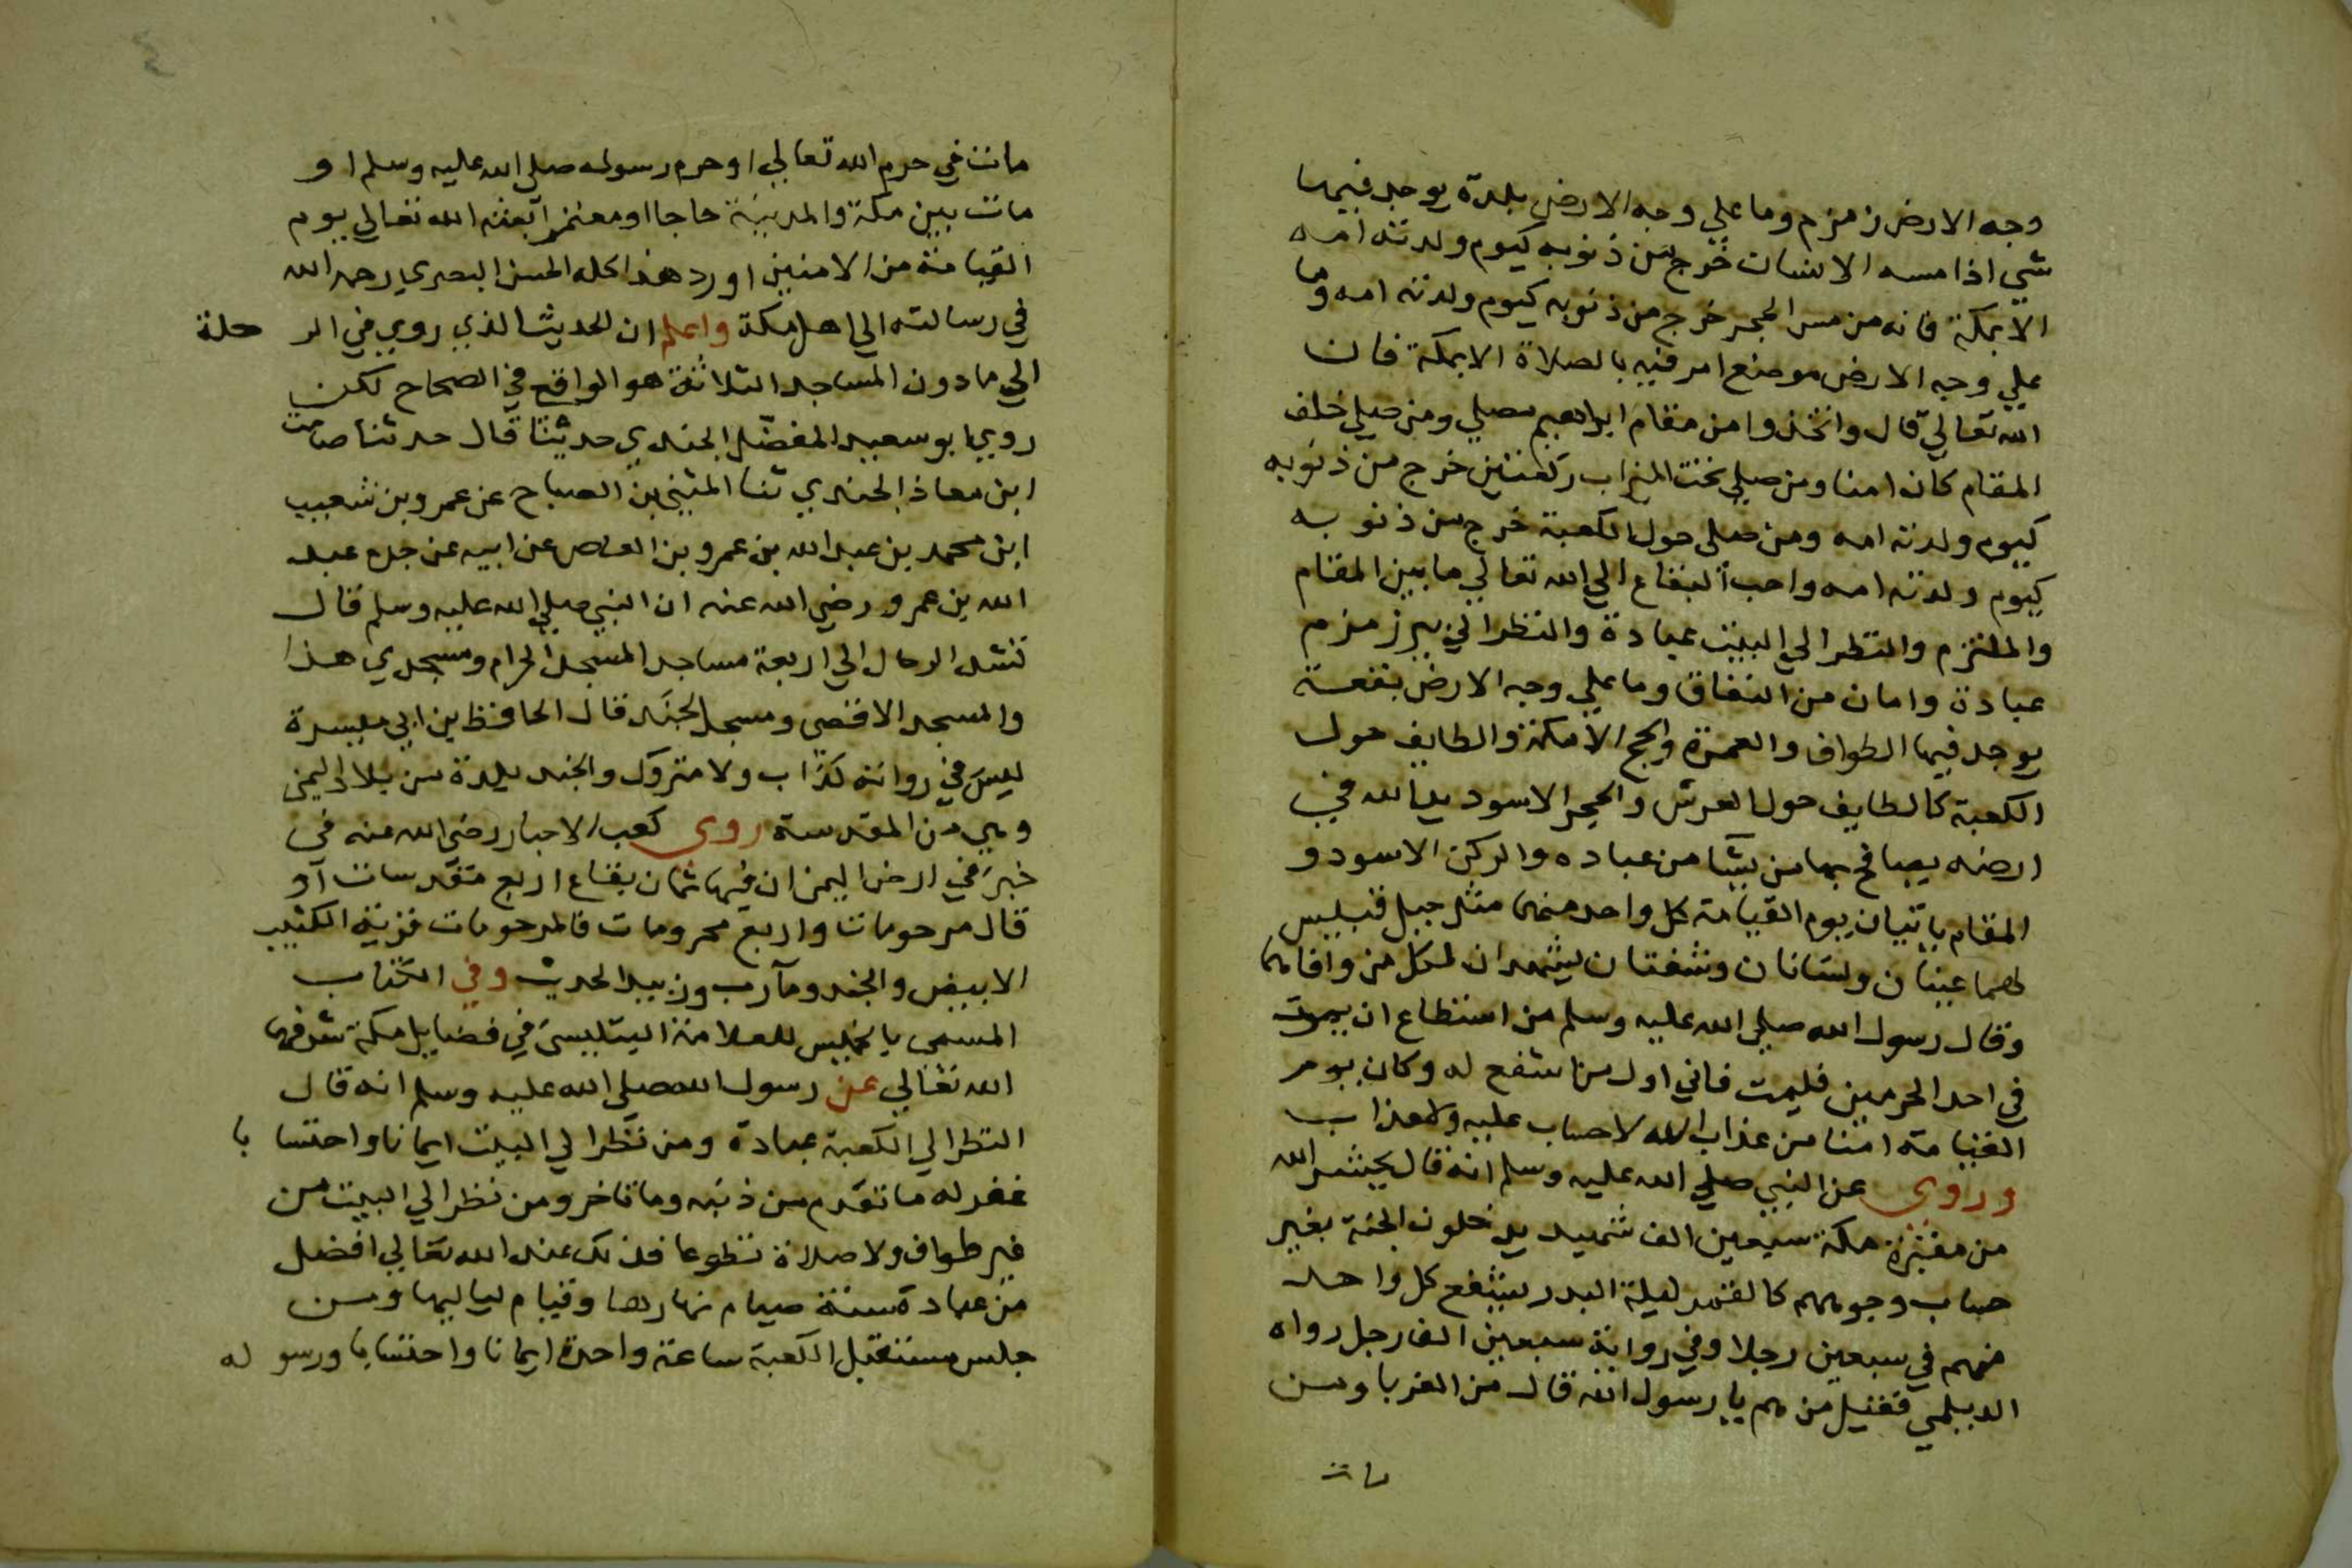 وجه الارض زمزم وما علي وجه الارض بلدة يوجد فيها
شي اذا مسه الانسان خرج من ذنوبه كيوم ولدته امه
الا بمكة فانه من مس الحجر خرج من ذنوبه كيوم ولدته امه وما
علي وجه الارض موضع امر فيه بالصلاة الا بمكة فان
الله تعالي قال واتخذوا من مقام ابراهيم مصلي ومن صلي خلف
المقام كان امنا ومن صلي تحت الميزاب ركعتين خرج من ذنوبه
كيوم ولدته امه ومن صلى حول الكعبة خرج من ذنوبه
كيوم ولدته امه واحب البقاع الي الله تعالي ما بين المقام
والملتزم والنظر الي البيت عبادة والنظر الي بير زمزم
عبادة وامان من النفاق وما علي وجه الارض بقعة
يوجد فيها الطواف والعمرة والحج الا مكة والطايف حول
الكعبة كالطايف حول العرش والحجر الاسود يد الله في
ارضه يصافح بها من يشا من عباده والركن الاسود و
المقام ياتيان يوم القيامة كل واحد منها مثل جبل قبيس
لهما عينان ولسانان وشفتان يشهدان لكل من وافاهما
وقال رسول الله صلي الله عليه وسلم من استطاع ان يموت
في احد الحرمين فليمت فاني اول من اشفع له وكان يوم
القيامة امنا من عذاب الله لا حساب عليه ولا عذاب
وروى عن النبي صلي الله عليه وسلم انه قال يحشر الله
من مقبرة مكة سبعين الف شهيد يدخلون الجنة بغير
حساب وجوههم كالقمر ليلة البدر يشفع كل واحد
منهم في سبعين رجلا وفي رواية سبعين الف رجل رواه
الديلمي فقيل من هم يا رسول الله قال من الغربا ومن
مات
٤
مات في حرم الله تعالي او حرم رسوله صلي الله عليه وسلم او
مات بين مكة والمدينة حاجا او معتمرا بعثه الله تعالي يوم
القيامة من الامنين اورد هذا كله الحسن البصري رحمه الله
في رسالته الي اهل مكة واعلم ان الحديث الذي روي في الر حلة
الي ما دون المساجد الثلاثة هو الواقع في الصحاح لكن
روي ابو سعيد المفضل الجندي حديثنا قال حدثنا صامت
ابن معاذ الجندي ثنا المثني بن الصباح عن عمرو بن شعيب
ابن محمد بن عبد الله بن عمرو بن العاص عن ابيه عن جده عبد
الله بن عمرو رضي الله عنه ان النبي صلي الله عليه وسلم قال
تشد الرحال الي اربعة مساجد المسجد الحرام ومسجدي هذا
والمسجد الاقصى ومسجد الجند قال الحافظ بن ابي ميسرة
ليس في رواته كذاب ولا متروك والجند بلدة من بلاد اليمن
وهي من المقدسة روى كعب الاحبار رضي الله عنه في
خبر في ارض اليمن ان فيها ثمان بقاع اربع مقدسات او
قال مرحومات واربع محرومات فالمرحومات قرية الكثيب
الابيض والجند ومآرب وزبيد الحديث وفي الكتاب
المسمى با للعلامة في فضايل مكة شرفها
الله تعالي عن رسول الله صلى الله عليه وسلم انه قال
النظر الي الكعبة عبادة ومن نظر الي البيت ايمانا واحتسا با
غفر له ما تقدم من ذنبه وما تاخر ومن نظر الي البيت من
غير طواف ولا صلاة تطوعا فذلك عند الله تعالي افضل
من عبادة سنة صيام نهارها وقيام لياليها ومن
جلس مستقبل الكعبة ساعة واحدة ايمانا واحتسابا ورسو له